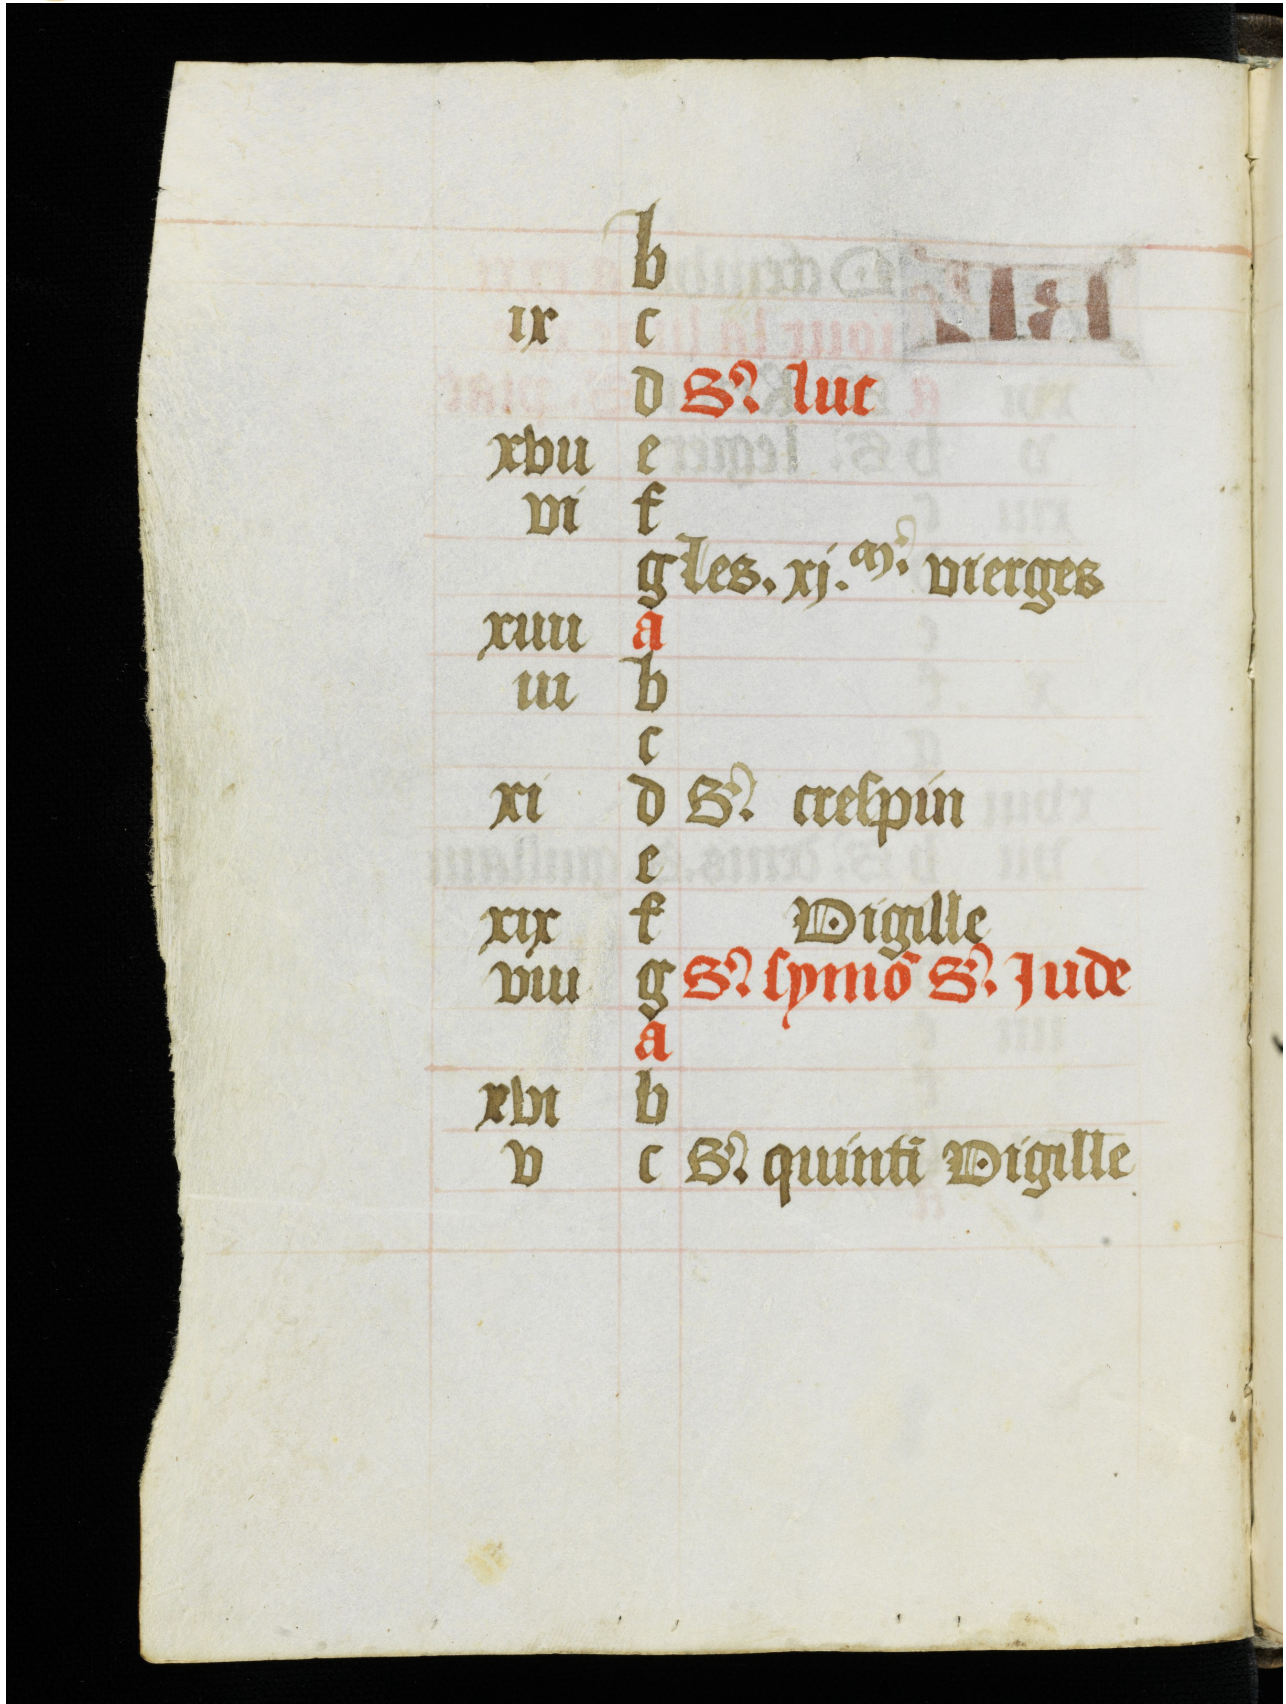 b
ix c
d S. luc
xvii e
vi f
g les. xj. m. vierges
xiiii a
iii b
c
xi d S. crespin
e
xix f Vigille
viii g S. symō S. Jude
a
xvi b
v c S. quintī Vigille